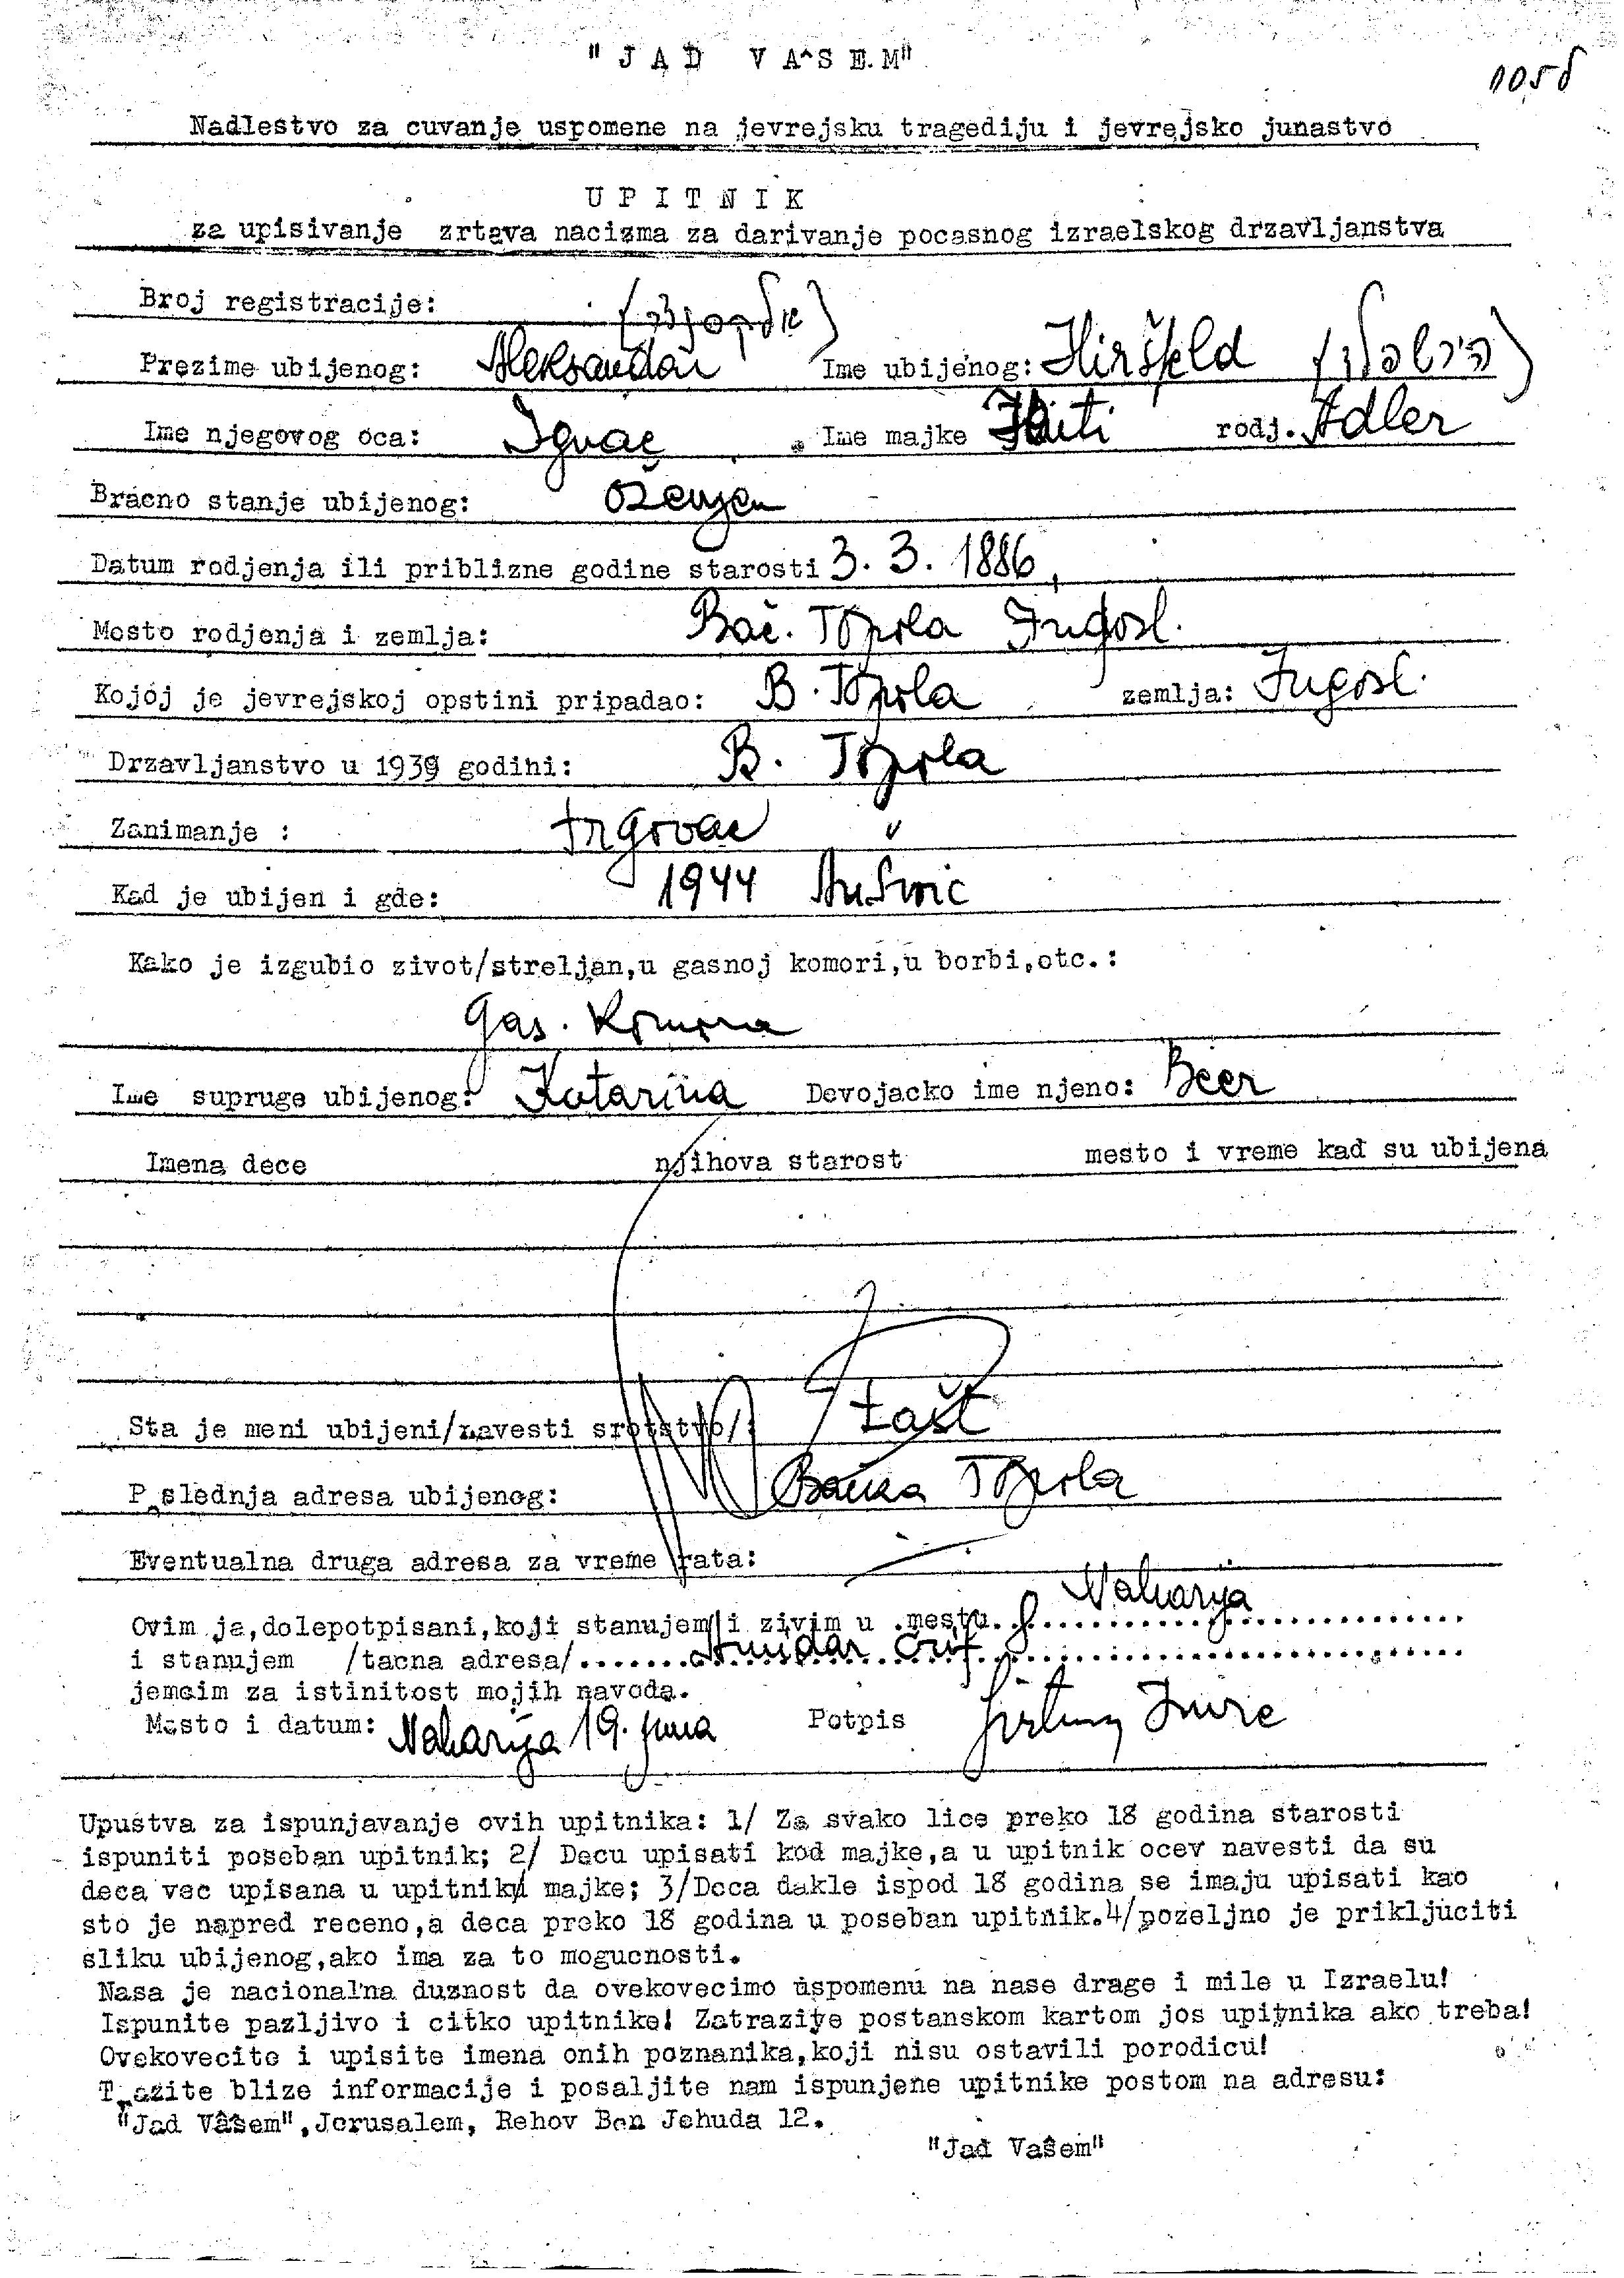 "JAD VAŠEM"
Nadlestvo za cuvanje uspomene na jevrejsku tragediju i jevrejsko junastvo
UPITNIK
za upisivanje zrtava nacizma za darivanje pocasnog izraelskog drzavljanstva
Broj registracije: (אלכסנדר)
Prezime ubijenog: Aleksandar Ime ubijenog: Hiršfeld (הירשפלד)
Ime njegovog oca: Ignac. Ime majke rodj. Adler
Bracno stanje ubijenog: Ozenjen
Datum rodjenja ili priblizne godine starosti 3. 3. 1886
Mesto rodjenja i zemlja: Bač. Topola Jugosl.
Kojoj je jevrejskoj opstini pripadao: B. Topola zemlja: Jugosl.
Drzavljanstvo u 1939 godini: B. Topola
Zanimanje : trgovac
Kad je ubijen i gde: 1944 Aušvic
Kako je izgubio zivot/streljan,u gasnoj komori,u borbi,etc.:
Gas. Komora
Ime supruge ubijenog: Katarina Devojacko ime njeno: Beer
Imena dece njihova starost mesto i vreme kad su ubijena
Sta je meni ubijeni/navesti srotstvo/: tašt
P slednja adresa ubijenog: Bačka Topola
Eventualna druga adresa za vreme rata:
Ovim ja,dolepotpisani,koji stanujem i zivim u mestu Naharija
i stanujem /tacna adresa/
jemcim za istinitost mojih navoda.
Mesto i datum: Naharija 19. juna Potpis Imre
Upustva za ispunjavanje ovih upitnika: 1/ Za svako lice preko 18 godina starosti
ispuniti poseban upitnik; 2/ Decu upisati kod majke,a u upitnik ocev navesti da su
deca vec upisana u upitniku majke; 3/Deca dakle ispod 18 godina se imaju upisati kao
sto je napred receno,a deca preko 18 godina u poseban upitnik.4/pozeljno je prikljuciti
sliku ubijenog,ako ima za to mogucnosti.
Nasa je nacionalna duznost da ovekovecimo uspomenu na nase drage i mile u Izraelu!
Ispunite pazljivo i citko upitnike! Zatrazite postanskom kartom jos upitnika ako treba!
Ovekovecite i upisite imena onih poznanika,koji nisu ostavili porodicu!
T azite blize informacije i posaljite nam ispunjene upitnike postom na adresu:
"Jad Vašem",Jerusalem, Rehov Ben Jehuda 12.
"Jad Vašem"